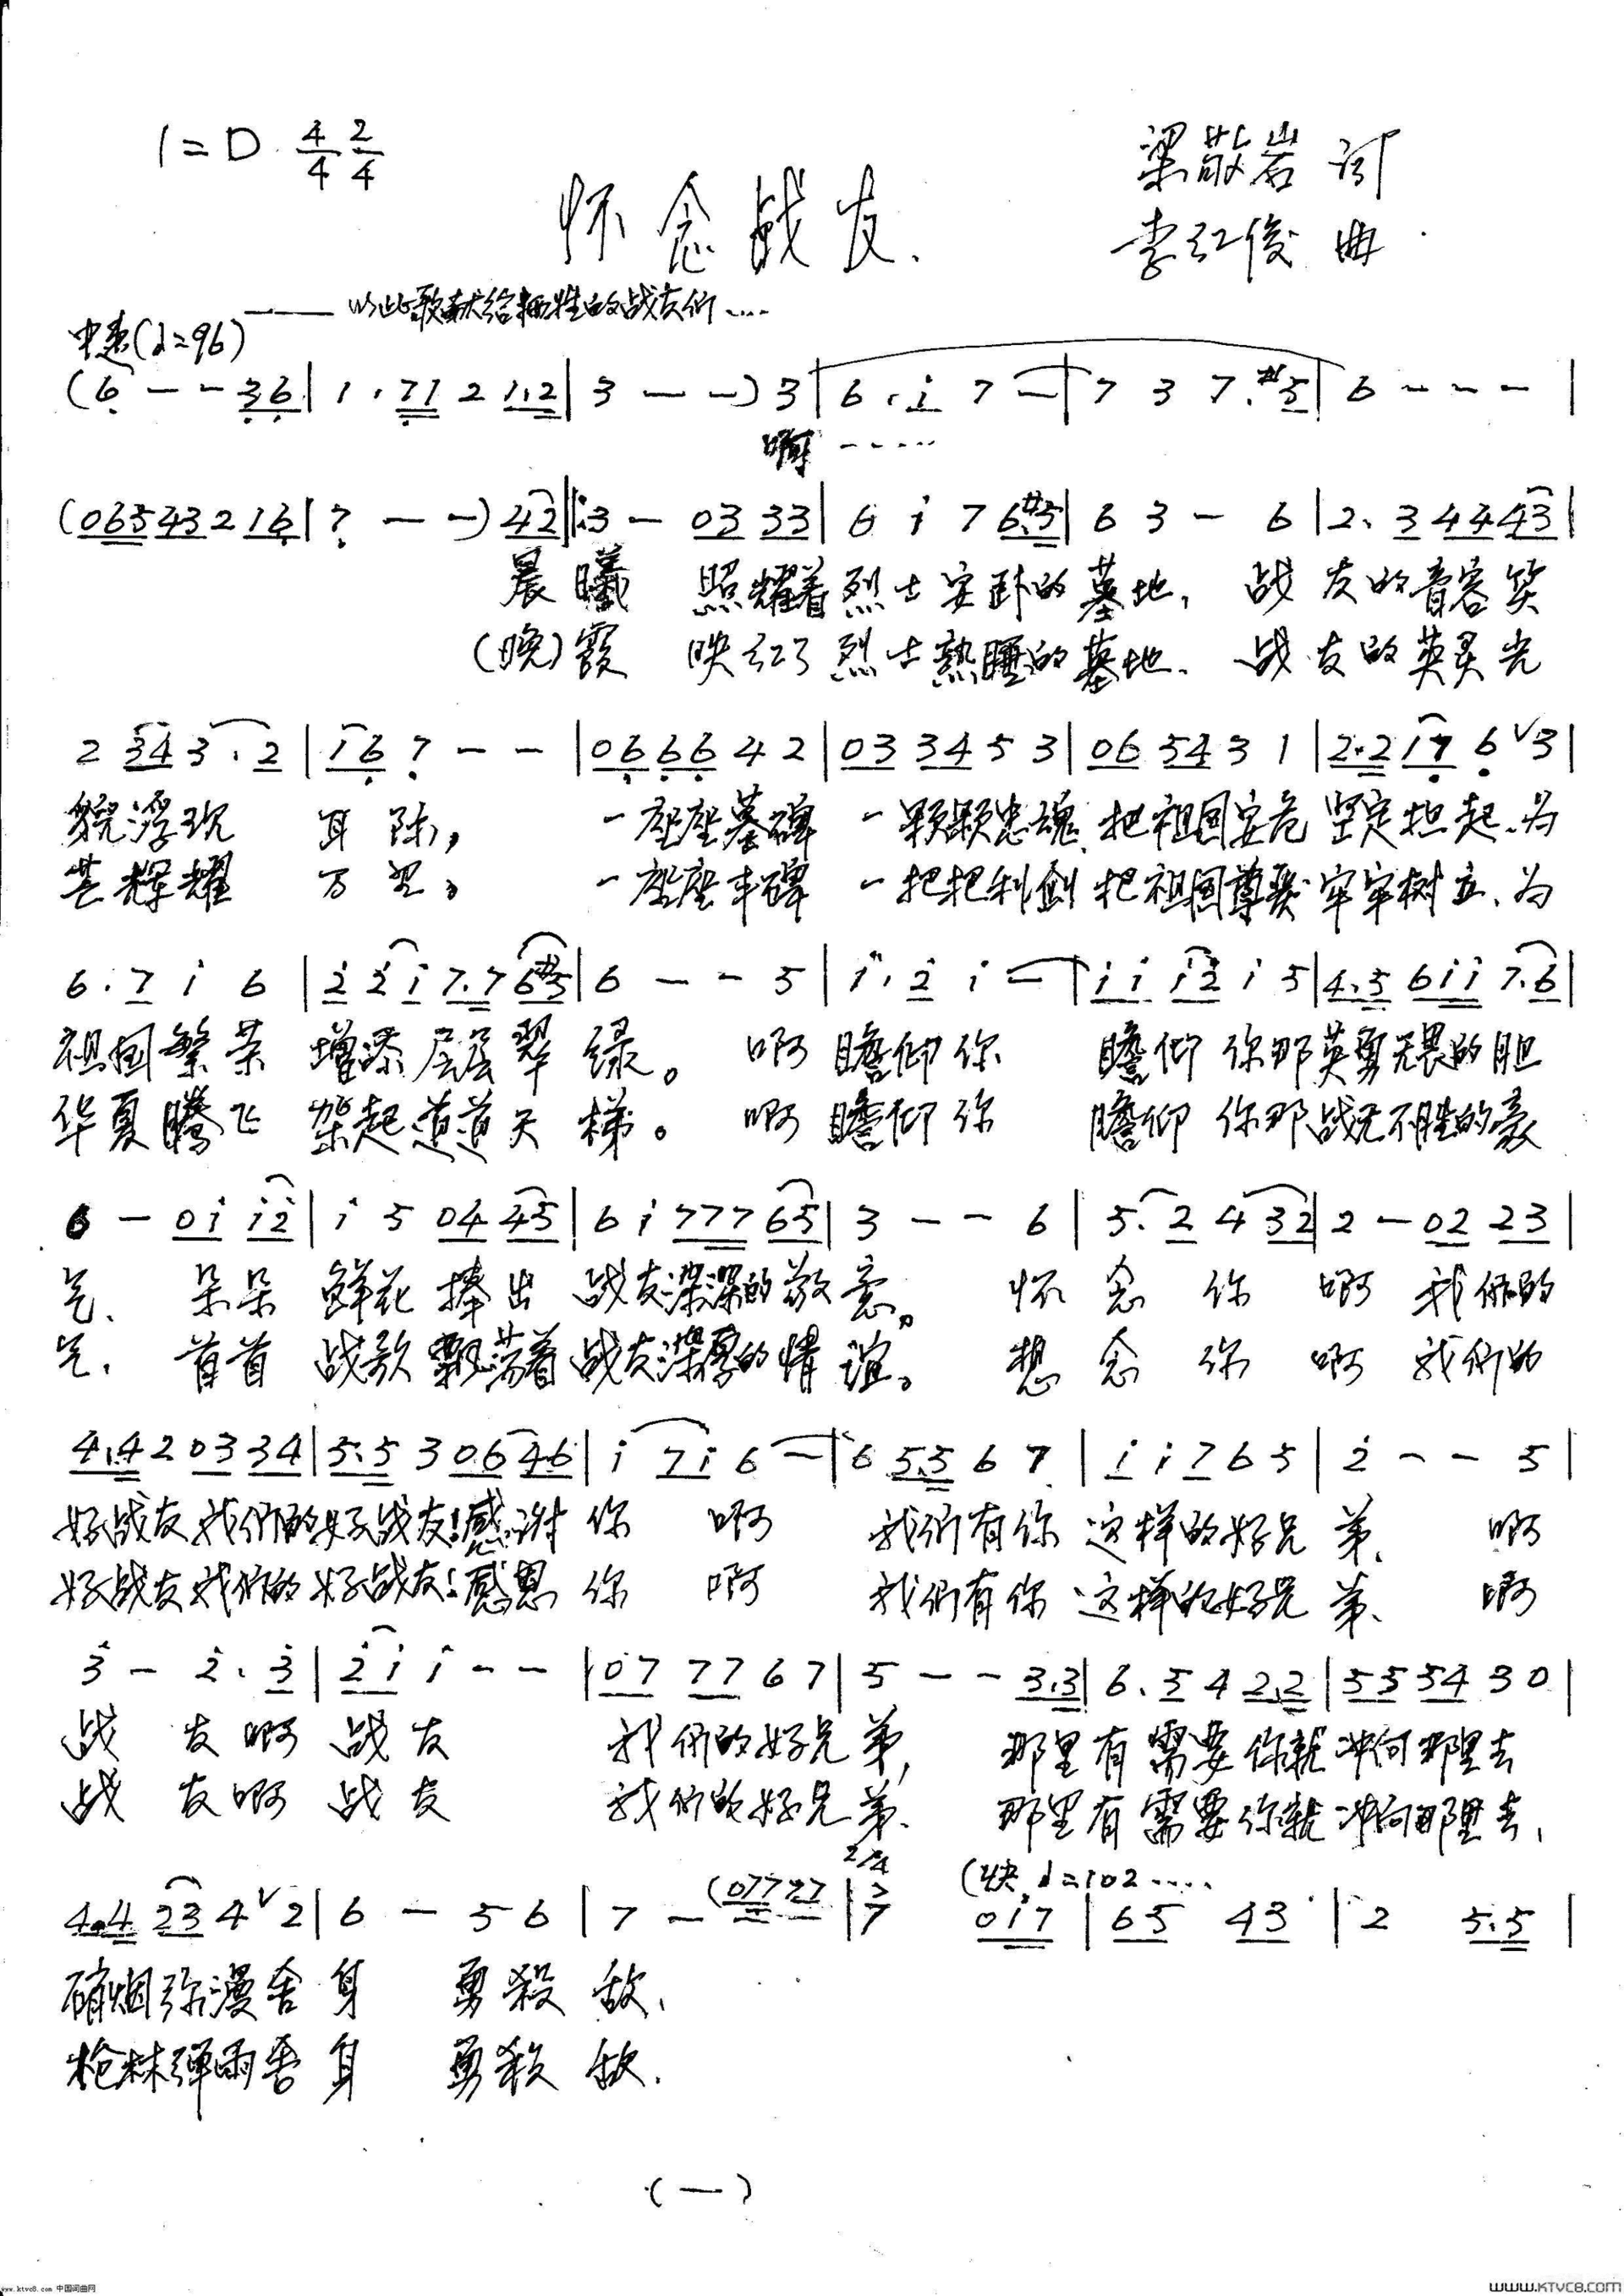 1=D 4/4 2/4
梁敬岩 词
怀念战友
李红俊 曲
——以此歌献给牺牲的战友们……
中速(♩=96)
(6̣ - - 3̣6̣ | 1 . 7̣1 2 1.2 | 3 - -) 3 | 6 . i 7 - | 7 3 7. #5 | 6 - - - |
啊 ……
(065 43 2 16̣ | 7̣ - -) 42 ‖: 3 - 03 33 | 6 i 7 6.#5 | 6 3 - 6 | 2. 3 44 43 |
晨曦 照耀着烈士安卧的墓地, 战友的音容笑
(晚)霞 映红了烈士熟睡的墓地、战友的英灵光
2 34 3 . 2 | 16̣ 7̣ - - | 06̣ 6̣6̣ 4 2 | 03 34 5 3 | 06 54 3 1 | 2.2 17̣ 6̣ ∨3 |
貌浮现 耳际, 一座座墓碑 一颗颗忠魂 把祖国安危 坚定担起、为
芒辉耀 万里, 一座座丰碑 一把把利剑 把祖国尊严 牢牢树立、为
6 . 7 i 6 | 2̇ 2̇ i 7.7 6#5 | 6 - - 5 | i . 2̇ i - | i i i2̇ i 5 | 4.5 6ii 7.6 |
祖国繁荣 增添层层翠绿。 啊 瞻仰你 瞻仰 你那英勇无畏的胆
华夏腾飞 架起道道天梯。 啊 瞻仰你 瞻仰 你那战无不胜的豪
6 - 0i i2̇ | i 5 04 45 | 6 i 777 65 | 3 - - 6 | 5. 2 4 32 | 2 - 02 23 |
气、 朵朵 鲜花 捧出 战友深深的敬意。 怀念你 啊 我们的
气、 首首 战歌 飘荡着 战友深厚的情谊。 想念你 啊 我们的
4.4 2 03 34 | 5.5 3 06 46 | i 7i 6 - | 6 5.5 6 7 | i i 7 6 5 | 2̇ - - 5 |
好战友我们的好战友!感谢 你 啊 我们有你 这样的好兄弟、 啊
好战友我们的好战友!感恩 你 啊 我们有你 这样的好兄弟、 啊
3̇ - 2̇ . 3̇ | 2̇i i - - | 07 77 6 7 | 5 - - 3.3 | 6. 5 4 2.2 | 55 54 3 0 |
战 友啊 战友 我们的好兄弟, 那里有需要你就冲向那里去
战 友啊 战友 我们的好兄弟、 那里有需要你就冲向那里去、
2/4 (快 ♩=102 ....
4.4 23 4 ∨2 | 6 - 5 6 | 7 - (077 77 | 7 0i7 | 65 43 | 2 5.5 |
硝烟弥漫舍身 勇殺敌、
枪林弹雨舍身 勇殺敌.
(一)
www.ktvc8.com 中国词曲网
www.KTVC8.com